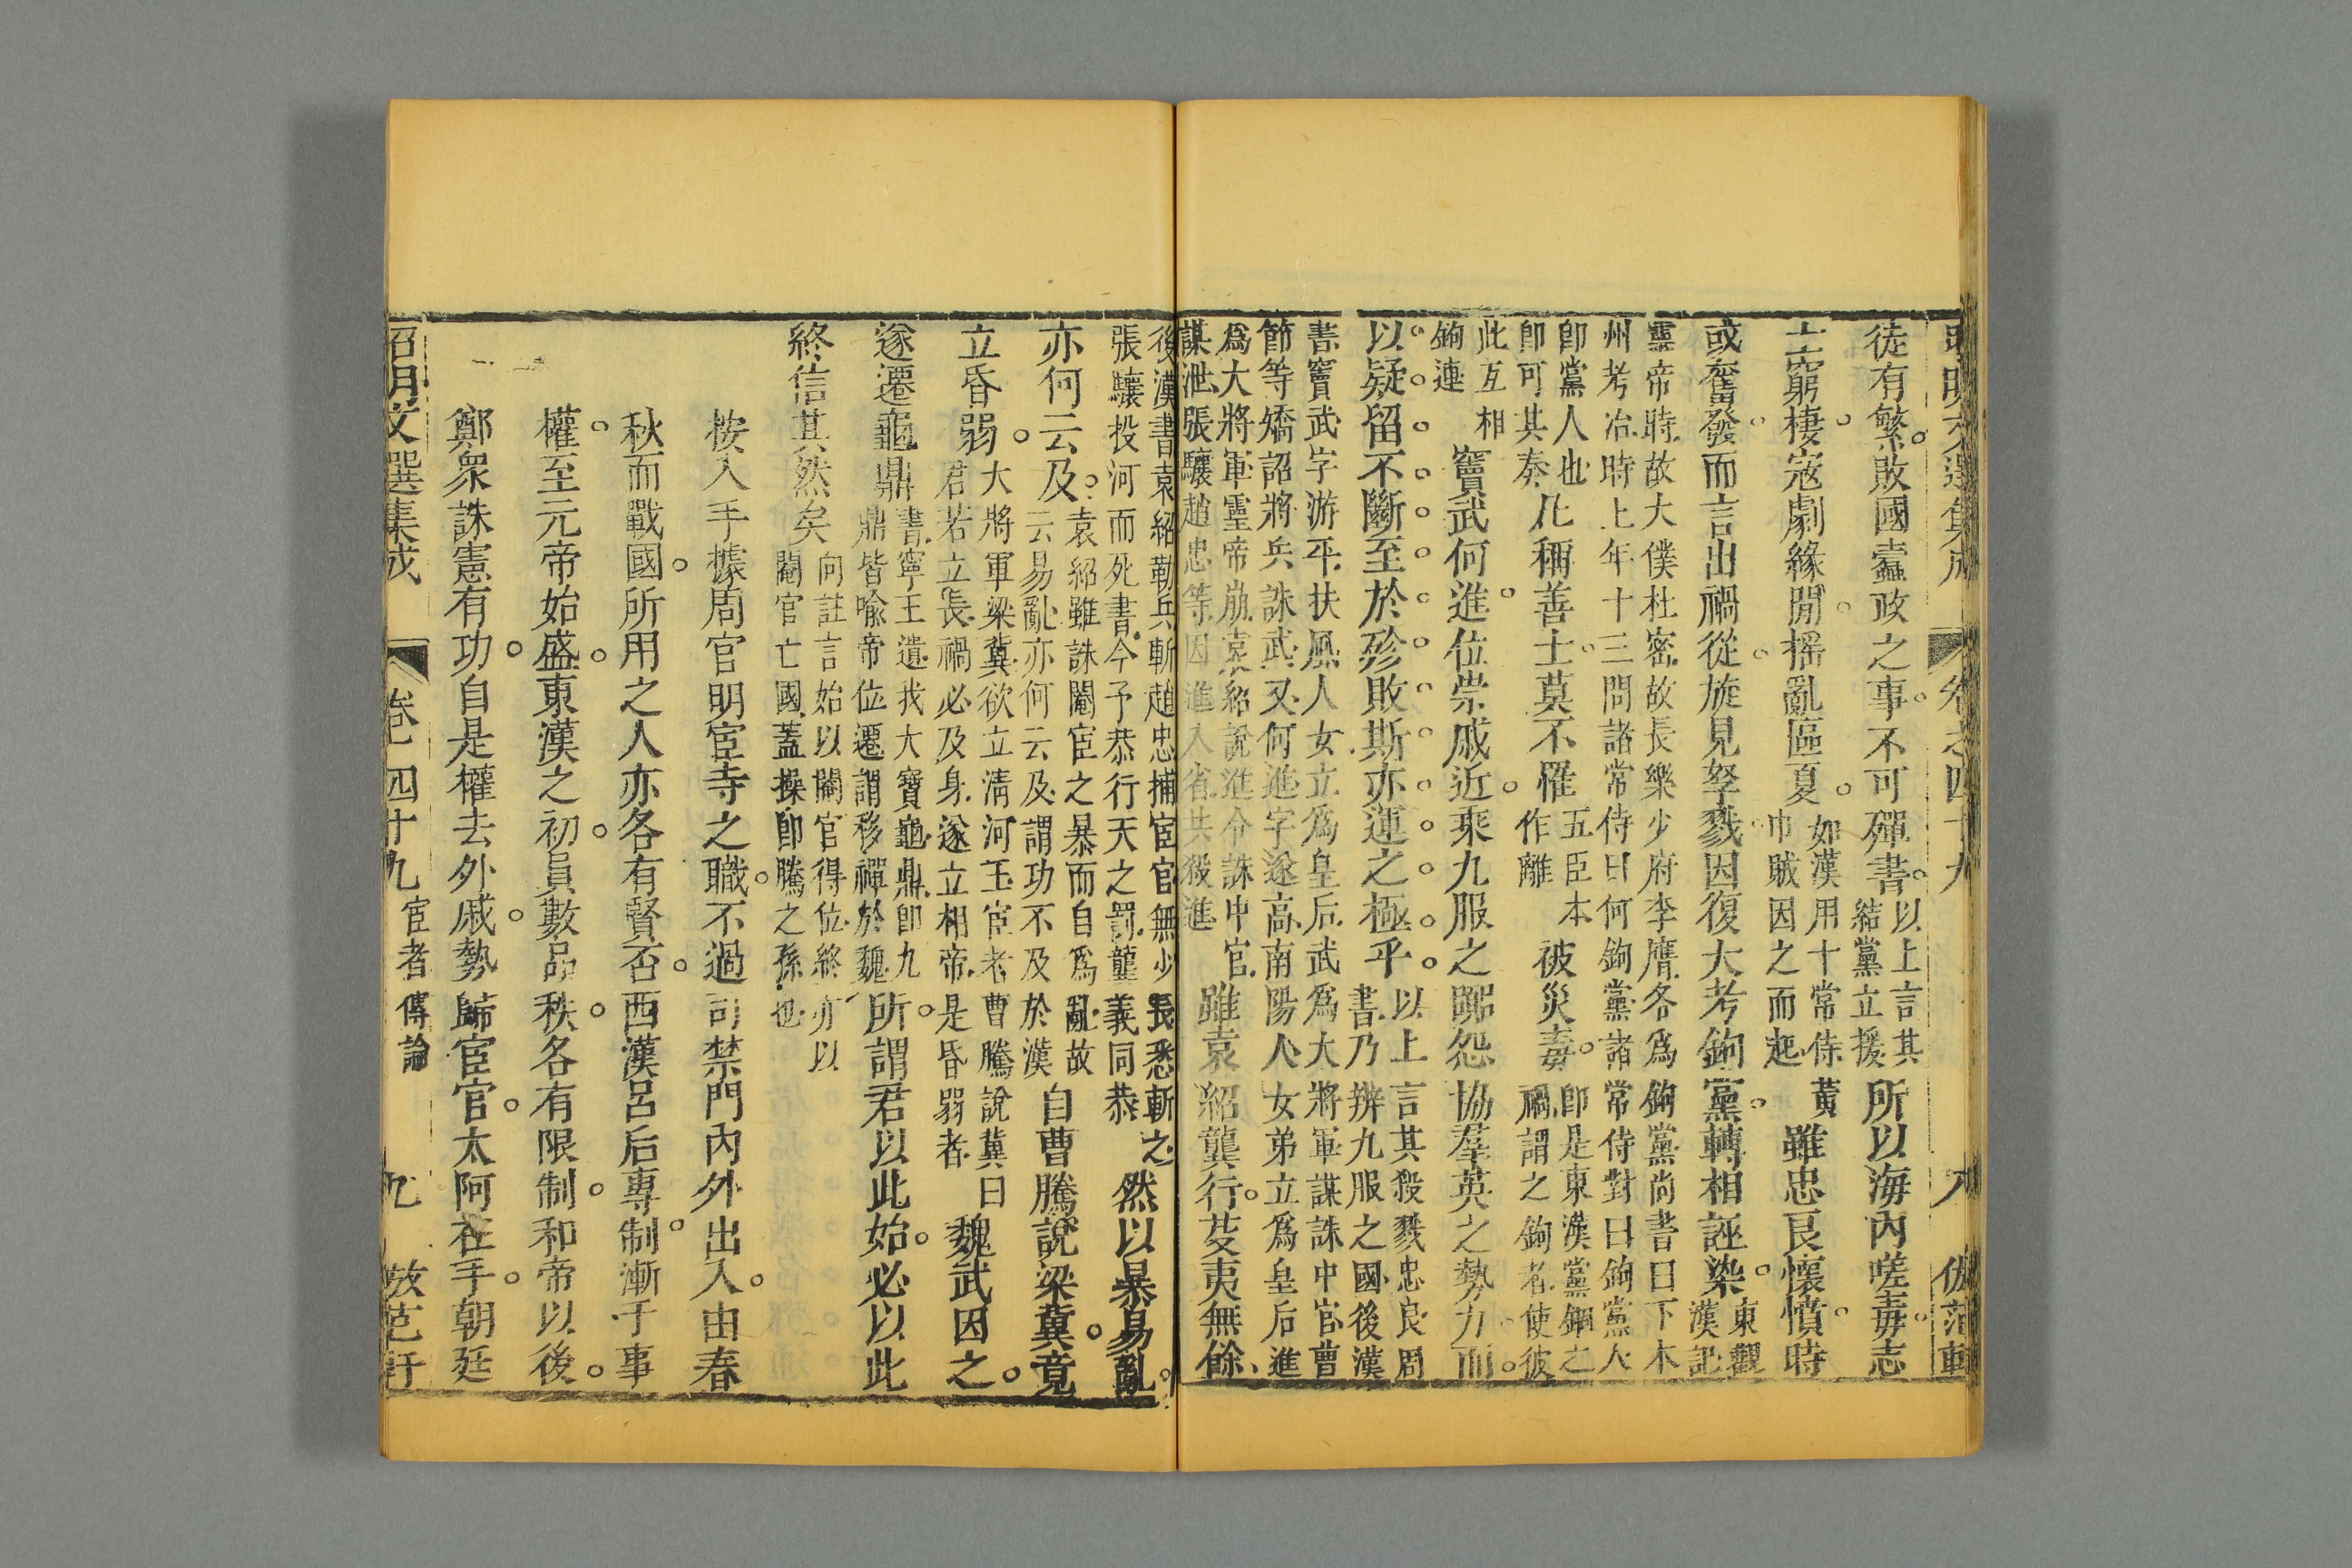 昭明文選集成 卷之四十九 八 倣范軒
徒有繁敗國蠧政之事不可殫書以上言其結黨立援所以海內嗟毒志
士窮棲寇劇緣閒搖亂區夏如漢用十常侍黃巾賊因之而起雖忠良懷憤時
或奮發而言出禍從旋見孥戮因復大考鉤黨轉相誣染東觀漢記
靈帝時故大僕杜密故長樂少府李膺各爲鉤黨尚書曰下本
州考治時上年十三問諸常侍曰何鉤黨諸常侍對曰鉤黨人
卽黨人也卽可其奏凡稱善士莫不罹五臣本作離被災毒卽是東漢黨錮之禍謂之鉤者使彼
此互相鉤連竇武何進位崇戚近乘九服之囂怨協羣英之勢力而
以疑留不斷至於殄敗斯亦運之極乎以上言其殺戮忠良周書乃辨九服之國後漢
書竇武字游平扶風人女立爲皇后武爲大將軍謀誅中官曹
節等矯詔將兵誅武又何進字遂高南陽人女弟立爲皇后進
爲大將軍靈帝崩袁紹說進令誅中官
謀泄張驤趙忠等因進入省共殺進雖袁紹龔行芟夷無餘
後漢書袁紹勒兵斬趙忠捕宦官無少長悉斬之
張驤投河而死書今予恭行天之罰龔義同恭然以暴易亂
亦何云及袁紹雖誅閹宦之暴而自爲亂故云易亂亦何云及謂功不及於漢自曹騰說梁冀竟
立昏弱大將軍梁冀欲立淸河王宦者曹騰說冀曰君若立長禍必及身遂立相帝是昏弱者魏武因之
遂遷龜鼎書寧王遺我大寶龜鼎卽九鼎皆喻帝位遷謂移禪於魏所謂君以此始必以此
終信其然矣向註言始以閹官得位終亦以閹官亡國蓋操卽騰之孫也
按入手據周官明宦寺之職不過司禁門內外出入由春
秋而戰國所用之人亦各有賢否西漢呂后專制漸于事
權至元帝始盛東漢之初員數品秩各有限制和帝以後
鄭衆誅憲有功自是權去外戚勢歸宦官太阿在手朝廷
昭明文選集成 卷之四十九 宦者傳論 九 倣范軒